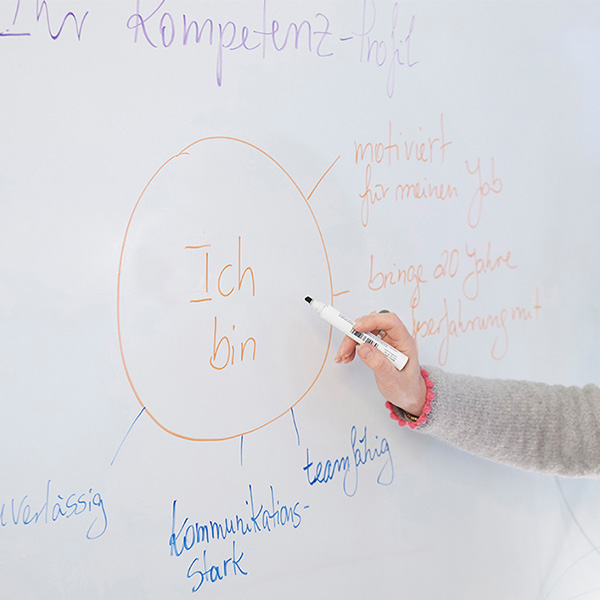 Ihr Kompetenz-Profil
motiviert
für meinen Job
Ich
bin
bringe 20 Jahre
mit
teamfähig
Kommunikations-
stark